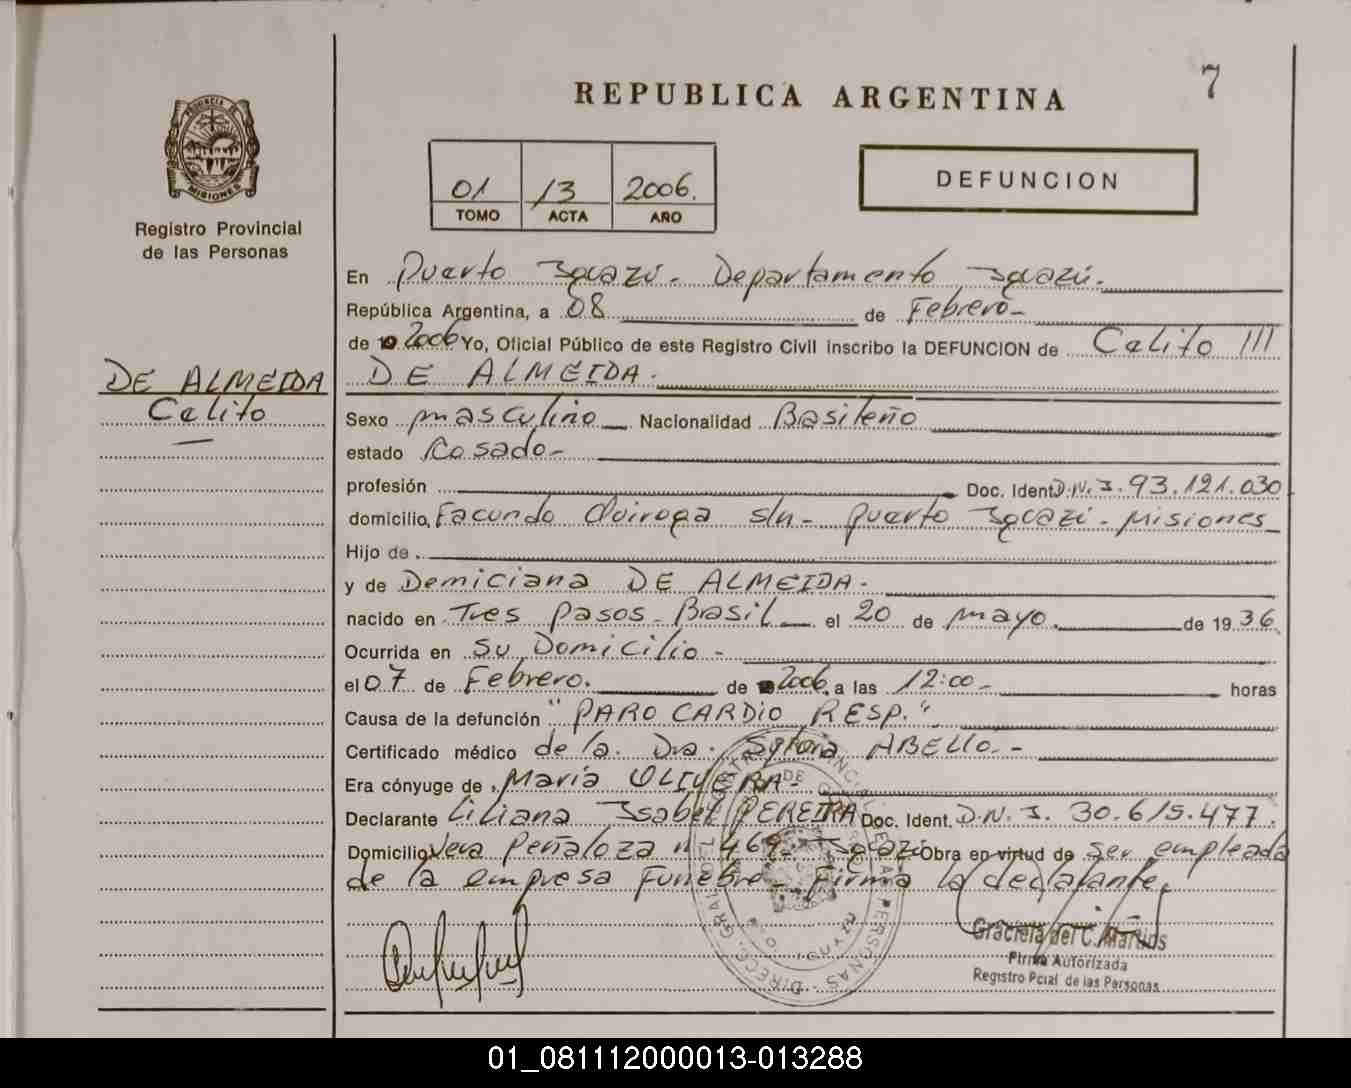 7
REPUBLICA ARGENTINA
PROVINCIA DE
MISIONES
Registro Provincial
de las Personas
01 13 2006.
TOMO ACTA AÑO
DEFUNCION
En Puerto Iguazú. Departamento Iguazú.
República Argentina, a 08 de Febrero-
de 2006 Yo, Oficial Público de este Registro Civil inscribo la DEFUNCION de Celito ///
DE ALMEIDA.
DE ALMEIDA
Celito
Sexo masculino Nacionalidad Brasileño
estado Casado-
profesión Doc. Ident. D.N.I. 93.121.030
domicilio, Facundo Quiroga s/n- Puerto Iguazú - Misiones
Hijo de
y de Demiciana DE ALMEIDA.
nacido en Tres Pasos - Brasil el 20 de mayo. de 1936
Ocurrida en Su Domicilio -
el 07 de Febrero. de 2006 a las 12:00- horas
Causa de la defunción "PARO CARDIO RESP."
Certificado médico de la. Dra. ABELLO.-
Era cónyuge de María OLIVERA-
Declarante Liliana Isabel PEREIRA Doc. Ident. D.N.I. 30.615.477.
Domicilio Vera Peñaloza n° 469- Iguazú Obra en virtud de ser empleada
de la empresa Funebre- Firma la declarante.
Graciela del C. Martins
Firma Autorizada
Registro Pcial de las Personas
01_081112000013-013288